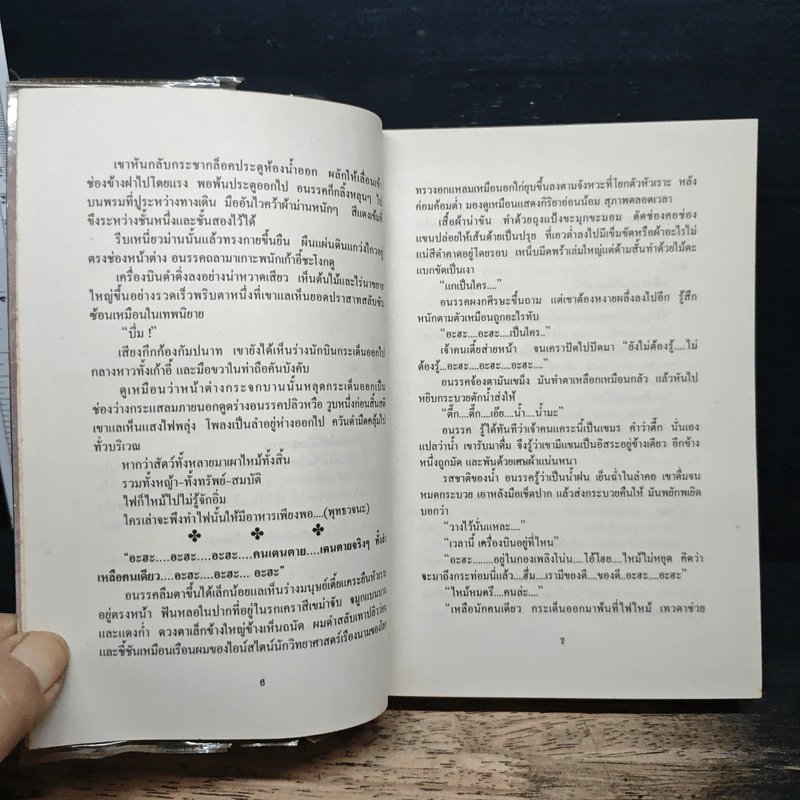 เขาหันกลับกระชากล็อคประตูห้องน้ำออก ผลักให้เลื่อนเข้า
ช่องข้างฝาไปโดยแรง พอพ้นประตูออกไป อนรรคก็กลิ้งหลุนๆ ไป
บนพรมที่ปูระหว่างทางเดิน มืออันไวคว้าผ้าม่านหนักๆ สีแดงเข้มที่
ขึงระหว่างชั้นหนึ่งและชั้นสองไว้ได้
รีบเหนี่ยวม่านนั้นแล้วทรงกายขึ้นยืน ผืนแผ่นดินแกว่งไกวอยู่
ตรงช่องหน้าต่าง อนรรคถลามาเกาะพนักเก้าอี้ชะโงกดู
เครื่องบินดำดิ่งลงอย่างน่าหวาดเสียว เห็นต้นไม้และไร่นาขยาย
ใหญ่ขึ้นอย่างรวดเร็วพริบตาหนึ่งที่เขาแลเห็นยอดปราสาทสลับซับ
ซ้อนเหมือนในเทพนิยาย
“บึ้ม !”
เสียงกึกก้องกัมปนาท เขายังได้เห็นร่างนักบินกระเด็นออกไป
กลางหาวทั้งเก้าอี้ และมือขวาในท่าถือคันบังคับ
ดูเหมือนว่าหน้าต่างกระจกบานนั้นหลุดกระเด็นออกเป็น
ช่องว่างกระแสลมภายนอกดูดร่างอนรรคปลิวหวือ วูบหนึ่งก่อนสิ้นสติ
เขาแลเห็นแสงไฟพลุ่ง โพลงเป็นลำอยู่ห่างออกไป ควันดำมืดคลุ้มไป
ทั่วบริเวณ
หากว่าสัตว์ทั้งหลายมาเผาไหม้ทั้งสิ้น
รวมทั้งหญ้า-ทั้งทรัพย์-สมบัติ
ไฟก็ไหม้ไปไม่รู้จักอิ่ม
ใครเล่าจะพึงทำไฟนั้นให้มีอาหารเพียงพอ....(พุทธวจนะ)
“อะฮะ....อะฮะ....อะฮะ....คนเดนตาย....เดนตายจริงๆ ทั้งลำ
เหลือคนเดียว....อะฮะ....อะฮะ... อะฮะ”
อนรรคลืมตาขึ้นได้เล็กน้อยแลเห็นร่างมนุษย์เตี้ยแคระยืนหัวเราะ
อยู่ตรงหน้า ฟันหลอในปากที่อยู่ในรกเคราสีเขม่าจับ จมูกแบนบาน
และแดงก่ำ ดวงตาเล็กข้างใหญ่ข้างเห็นถนัด ผมดำสลับเทาปลิวว่อน
และชี้ชันเหมือนเรือนผมของไอน์สไตน์นักวิทยาศาสตร์เรืองนามของโลก
6
ทรวงอกแหลมเหมือนอกไก่ยุบขึ้นลงตามจังหวะที่โยกตัวหัวเราะ หลัง
ค่อมค้อมต่ำ มองดูเหมือนแสดงกิริยาอ่อนน้อม สุภาพตลอดเวลา
เสื้อผ้าน่าขัน ทำด้วยถุงแป้งขะมุกขะมอม ตัดช่องคอช่อง
แขนปล่อยให้เส้นด้ายเป็นปรุย ที่เอวต่ำลงไปมีเข็มขัดหรือผ้าอะไรไม่
แน่สีดำคาดอยู่โดยรอบ เหน็บมีดพร้าเล่มใหญ่แต่ด้ามสั้นทำด้วยไม้ตะ
แบกขัดเป็นเงา
“แกเป็นใคร....”
อนรรคผงกศีรษะขึ้นถาม แต่เขาต้องหงายผลึ่งลงไปอีก รู้สึก
หนักตามตัวเหมือนถูกอะไรทับ
“อะฮะ....อะฮะ....เป็นใคร..”
เจ้าคนเตี้ยส่ายหน้า จนเคราปัดไปปัดมา “ยังไม่ต้องรู้....ไม่
ต้องรู้...อะฮะ....อะฮะ....อะฮะ....อะฮะ....”
อนรรคจ้องตามันเขม็ง มันทำตาเหลือกเหมือนกลัว แล้วหันไป
หยิบกระบวยตักน้ำส่งให้
“ตึ๊ก....ตึ๊ก....เอ๊ย....น้ำ....น้ำนะ”
อนรรค รู้ได้ทันทีว่าเจ้าคนแคระนี้เป็นเขมร คำว่าตึ๊ก นั่นเอง
แปลว่าน้ำ เขารับมาดื่ม จึงรู้ว่าเขามีแขนเป็นอิสระอยู่ข้างเดียว อีกข้าง
หนึ่งถูกมัด และพันด้วยเศษผ้าแน่นหนา
รสชาติของน้ำ อนรรครู้ว่าเป็นน้ำฝน เย็นฉ่ำในลำคอ เขาดื่มจน
หมดกระบวย เอาหลังมือเช็ดปาก แล้วส่งกระบวยคืนให้ มันพยักพเยิด
บอกว่า
“วางไว้นั่นแหละ....”
“เวลานี้ เครื่องบินอยู่ที่ไหน”
“อะฮะ.......อยู่ในกองเพลิงโน่น....โอ้โฮย....ไหม้ไม่หยุด คิดว่า
จะมาถึงกระท่อมนี่แล้ว....ฮึ่ม....เรามีของดี....ของดี..อะฮะ....อะฮะ”
“ไหม้หมดรึ....คนล่ะ....”
“เหลือนักคนเดียว กระเด็นออกมาพ้นที่ไฟไหม้ เทวดาช่วย
7